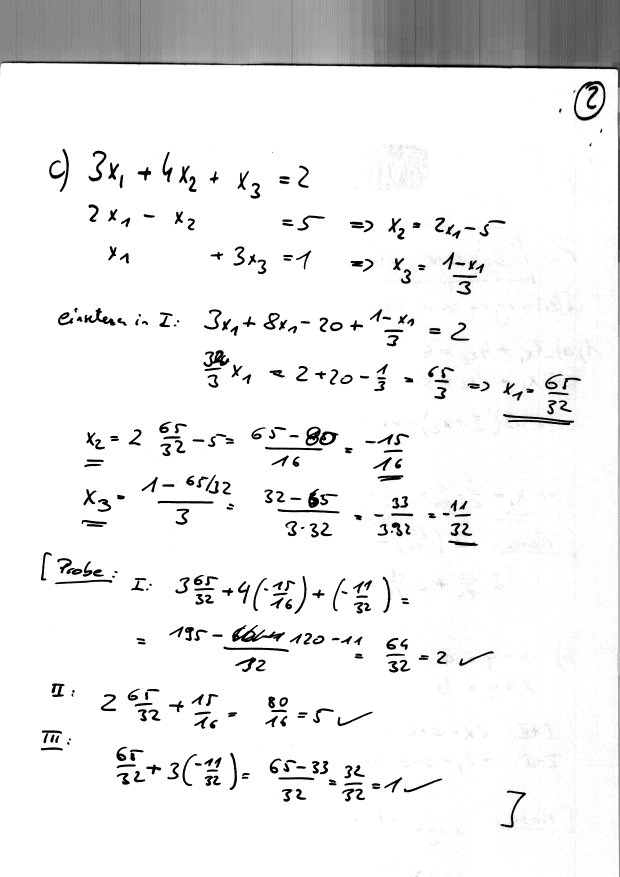 2
c) 3x₁ + 4x₂ + x₃ = 2
2x₁ - x₂ = 5 => x₂ = 2x₁-5
x₁ + 3x₃ = 1 => x₃ = (1-x₁)/3
einsetzen in I: 3x₁ + 8x₁ - 20 + (1-x₁)/3 = 2
32/3 x₁ = 2+20 - 1/3 = 65/3 => x₁ = 65/32
x₂ = 2 65/32 - 5 = (65-80)/16 = -15/16
x₃ = (1 - 65/32)/3 = (32-65)/(3·32) = -33/(3·32) = -11/32
[ Probe: I: 3 65/32 + 4(-15/16) + (-11/32) =
= (195 - 120 - 11)/32 = 64/32 = 2 ✓
II: 2 65/32 + 15/16 = 80/16 = 5 ✓
III:
65/32 + 3(-11/32) = (65-33)/32 = 32/32 = 1 ✓
]